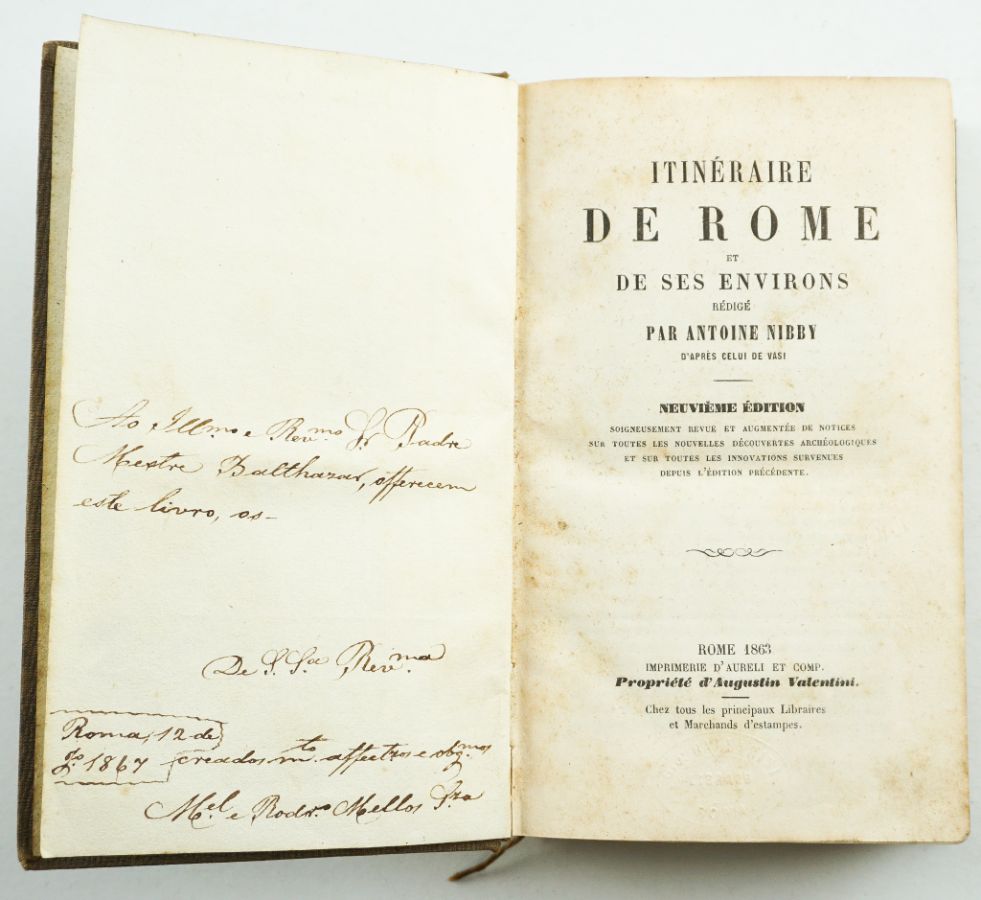 Ao Illmo e Revmo Sr Padre
Mestre Balthazar, offerecem
este livro, os-
De S. Sa Revma
Roma, 12 de
1867
creados mto affectos e obgmos
Mel e Rodro Mellos
ITINÉRAIRE
DE ROME
ET
DE SES ENVIRONS
RÉDIGÉ
PAR ANTOINE NIBBY
D'APRÈS CELUI DE VASI
NEUVIÈME ÉDITION
SOIGNEUSEMENT REVUE ET AUGMENTÉE DE NOTICES
SUR TOUTES LES NOUVELLES DÉCOUVERTES ARCHÉOLOGIQUES
ET SUR TOUTES LES INNOVATIONS SURVENUES
DEPUIS L'ÉDITION PRÉCÉDENTE.
ROME 1863
IMPRIMERIE D'AURELI ET COMP.
Propriété d'Augustin Valentini.
Chez tous les principaux Libraires
et Marchands d'estampes.